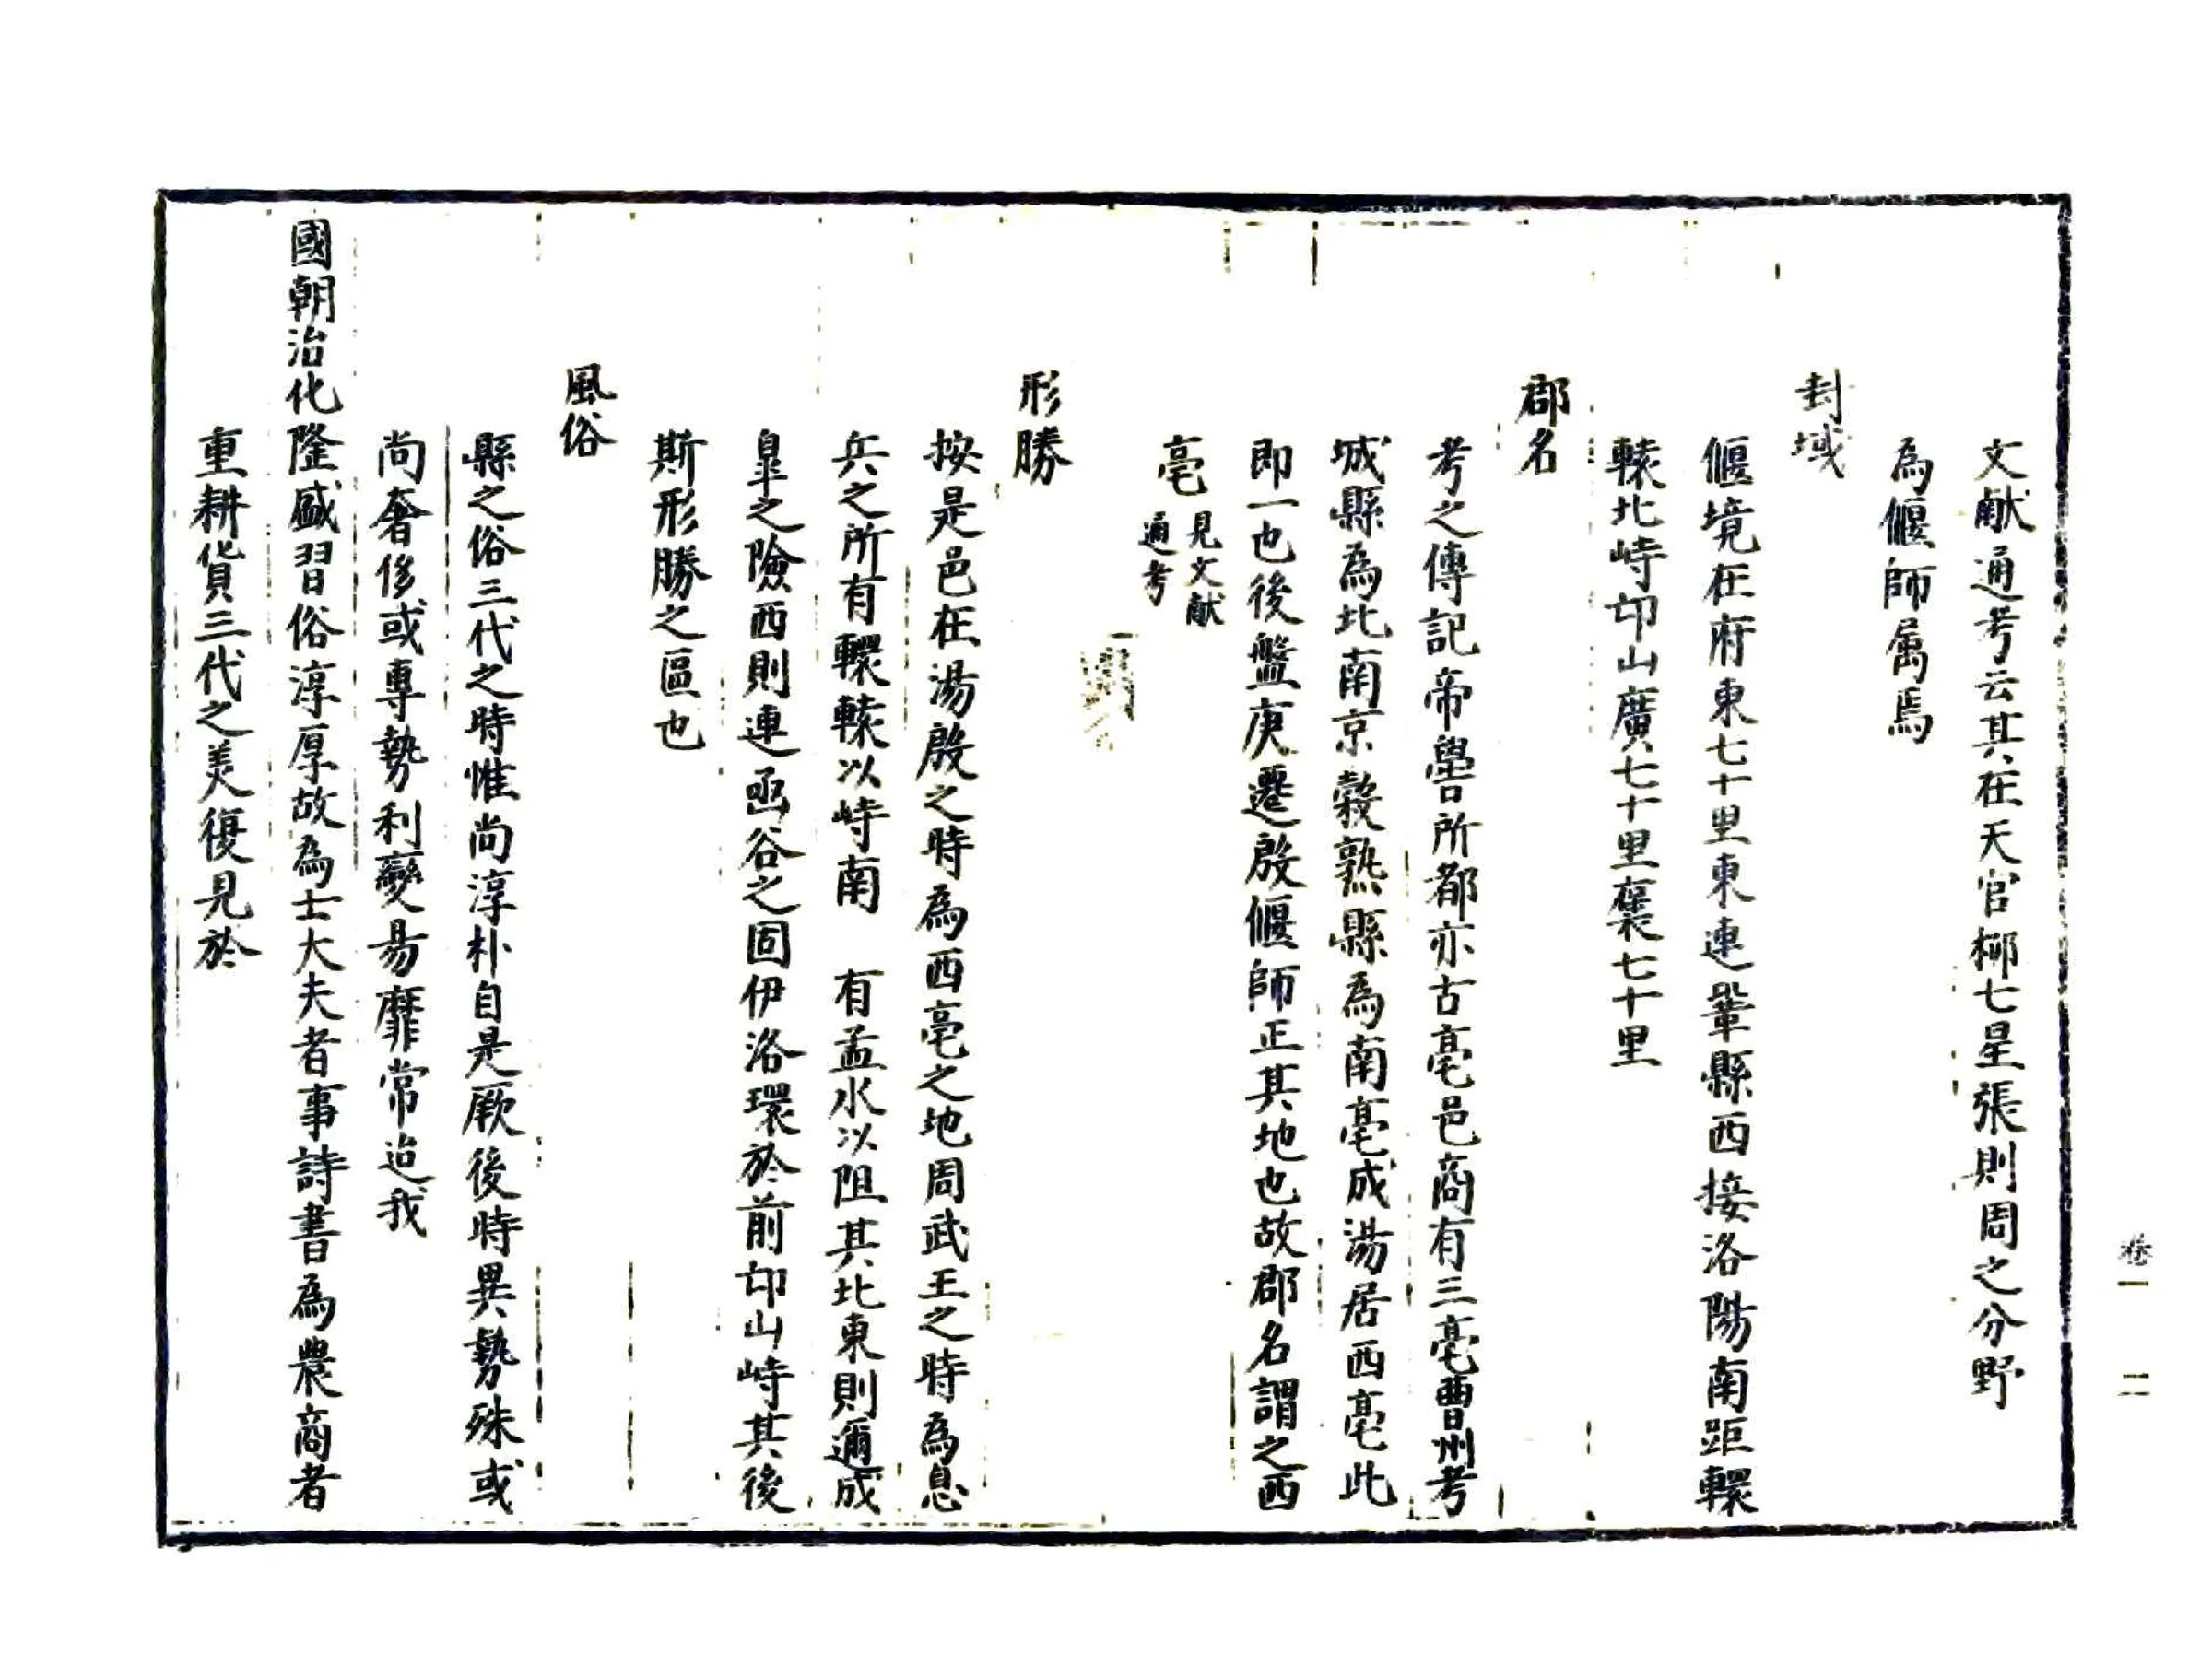 文献通考云其在天官柳七星張則周之分野
為偃師屬焉
封域
偃境在府東七十里東連鞏縣西接洛陽南距轘
轅北峙邙山廣七十里袤七十里
郡名
考之傳記帝嚳所都亦古亳邑商有三亳曹州考
城縣為北南京穀熟縣為南亳成湯居西亳此
即一也後盤庚遷殷偃師正其地也故郡名謂之西
亳見文献
通考
形勝
按是邑在湯殷之時為西亳之地周武王之時為息
兵之所有轘轅以峙南 有孟水以阻其北東則邇成
皐之險西則連函谷之固伊洛環於前邙山峙其後
斯形勝之區也
風俗
縣之俗三代之時惟尚淳朴自是厥後時異勢殊或
尚奢侈或專勢利變易靡常迨我
國朝治化隆盛習俗淳厚故為士大夫者事詩書為農商者
重耕貨三代之美復見於
卷一 二